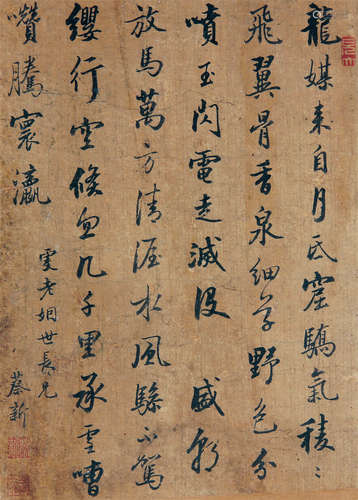 龍媒来自月氏窟驕氣稜〻
飛翼骨香泉細草野色分
噴玉閃電走滅没　盛朝
放馬萬方清渥水風騣不駕
纓行空倏忽几千里承雲嘈
囋騰寰瀛
雯老姻世長兄
蔡新